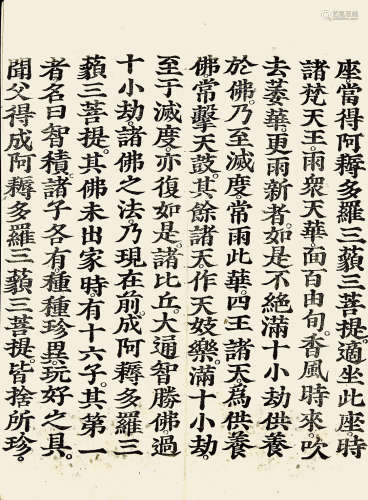 座當得阿耨多羅三藐三菩提。適坐此座時
諸梵天王。雨衆天華。面百由旬。香風時來。吹
去萎華。更雨新者。如是不絕。滿十小劫。供養
於佛。乃至滅度。常雨此華。四王諸天。為供養
佛。常擊天鼓。其餘諸天。作天妓樂。滿十小劫。
至于滅度。亦復如是。諸比丘。大通智勝佛。過
十小劫。諸佛之法。乃現在前。成阿耨多羅三
藐三菩提。其佛未出家時。有十六子。其第一
者。名曰智積。諸子各有種種珍異玩好之具。
聞父得成阿耨多羅三藐三菩提。皆捨所珍。